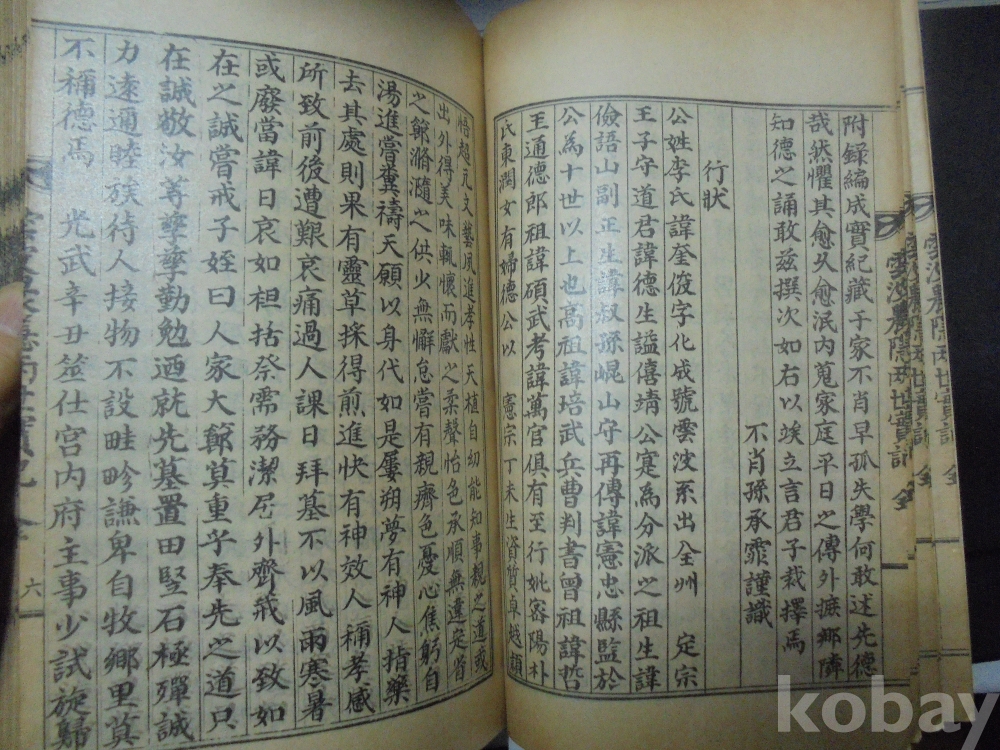 附錄編成實紀藏于家不肖早孤失學何敢述先德
哉然懼其愈久愈泯內蒐家庭平日之傳外摭鄉隣
知德之誦敢玆撰次如右以竢立言君子裁擇焉
不肖孫承霏謹識
行狀
公姓李氏諱奎浚字化成號雲波系出全州 定宗
王子守道君諱德生諡僖靖 公寔爲分派之祖生諱
儉語山副正生諱叔孫崐山守再傳諱憲忠縣監於
公爲十世以上也高祖諱培武兵曹判書曾祖諱哲
王通德郎祖諱碩武考諱萬官俱有至行妣密陽朴
氏東潤女有婦德公以 憲宗丁未生資質卓越穎
悟超凡文藝夙進孝性天植自幼能知事親之道或
出外得美味輒懷而獻之柔聲怡色承順無違定省
之節滫瀡之供少無懈怠嘗有親癠色憂心焦躬自
湯進嘗糞禱天願以身代如是屢朔夢有神人指藥
去其處則果有靈草採得煎進快有神效人稱孝感
所致前後遭艱哀痛過人課日拜墓不以風雨寒暑
或廢當諱日哀如袒括祭需務潔居外齊戒以致如
在之誠嘗戒子姪曰人家大節莫重乎奉先之道只
在誠敬汝等孳孳勤勉迺就先墓置田竪石極殫誠
力遠邇睦族待人接物不設畦畛謙卑自牧鄉里莫
不稱德焉 光武辛丑筮仕宮內府主事少試旋歸
六
雲波農隱兩世實記 全
kobay